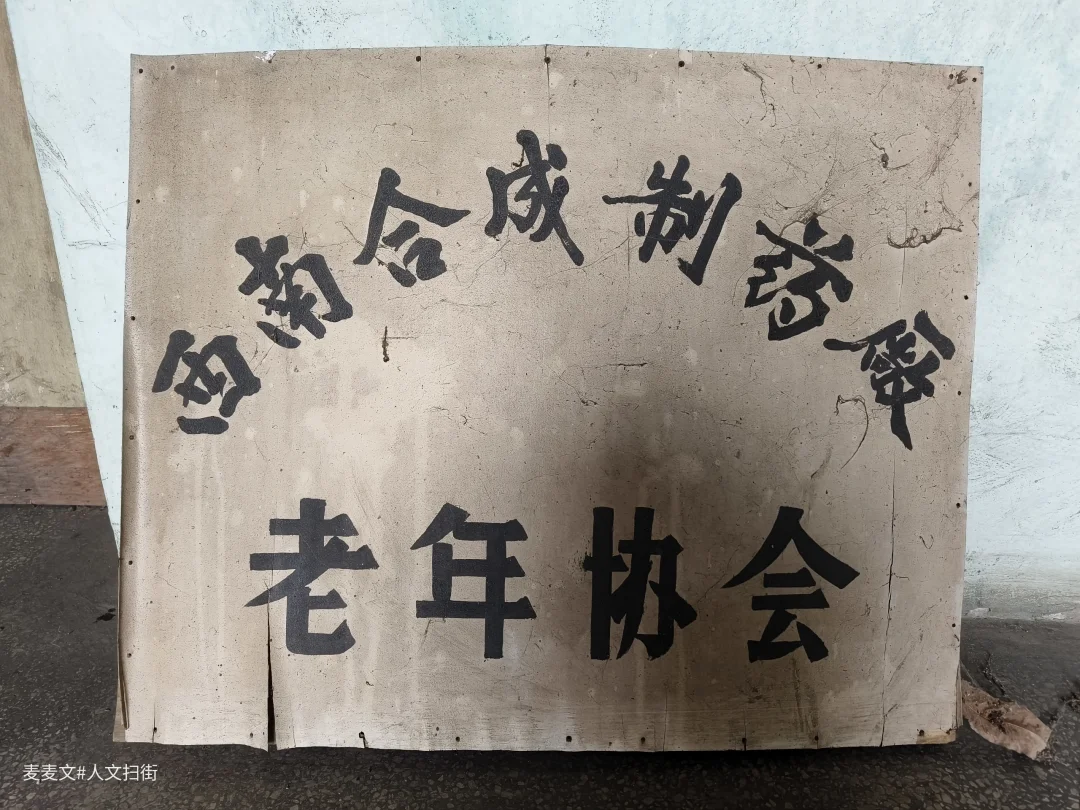 西南合成制药廠
老年协会
麦麦文#人文扫街